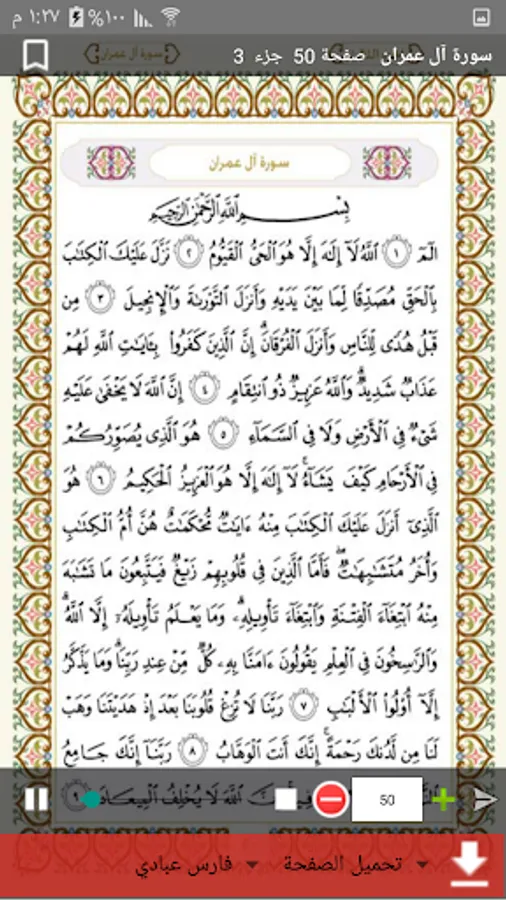 ١:٢٧ م ١٠٠%
سورة آل عمران صفحة 50 جزء 3
سورة آل عمران
سورة آل عمران
بِسْمِ اللَّهِ الرَّحْمَٰنِ الرَّحِيمِ
الٓمٓ ١ اللَّهُ لَآ إِلَٰهَ إِلَّا هُوَ الْحَىُّ الْقَيُّومُ ٢ نَزَّلَ عَلَيْكَ الْكِتَٰبَ
بِالْحَقِّ مُصَدِّقًا لِّمَا بَيْنَ يَدَيْهِ وَأَنزَلَ التَّوْرَىٰةَ وَالْإِنجِيلَ ٣ مِن
قَبْلُ هُدًى لِّلنَّاسِ وَأَنزَلَ الْفُرْقَانَ ۗ إِنَّ الَّذِينَ كَفَرُوا۟ بِـَٔايَٰتِ اللَّهِ لَهُمْ
عَذَابٌ شَدِيدٌ ۗ وَاللَّهُ عَزِيزٌ ذُو انتِقَامٍ ٤ إِنَّ اللَّهَ لَا يَخْفَىٰ عَلَيْهِ
شَىْءٌ فِى الْأَرْضِ وَلَا فِى السَّمَآءِ ٥ هُوَ الَّذِى يُصَوِّرُكُمْ
فِى الْأَرْحَامِ كَيْفَ يَشَآءُ ۚ لَآ إِلَٰهَ إِلَّا هُوَ الْعَزِيزُ الْحَكِيمُ ٦ هُوَ
الَّذِىٓ أَنزَلَ عَلَيْكَ الْكِتَٰبَ مِنْهُ ءَايَٰتٌ مُّحْكَمَٰتٌ هُنَّ أُمُّ الْكِتَٰبِ
وَأُخَرُ مُتَشَٰبِهَٰتٌ ۖ فَأَمَّا الَّذِينَ فِى قُلُوبِهِمْ زَيْغٌ فَيَتَّبِعُونَ مَا تَشَٰبَهَ
مِنْهُ ابْتِغَآءَ الْفِتْنَةِ وَابْتِغَآءَ تَأْوِيلِهِۦ ۗ وَمَا يَعْلَمُ تَأْوِيلَهُۥٓ إِلَّا اللَّهُ ۗ
وَالرَّٰسِخُونَ فِى الْعِلْمِ يَقُولُونَ ءَامَنَّا بِهِۦ كُلٌّ مِّنْ عِندِ رَبِّنَا ۗ وَمَا يَذَّكَّرُ
إِلَّآ أُو۟لُوا۟ الْأَلْبَٰبِ ٧ رَبَّنَا لَا تُزِغْ قُلُوبَنَا بَعْدَ إِذْ هَدَيْتَنَا وَهَبْ
لَنَا مِن لَّدُنكَ رَحْمَةً ۚ إِنَّكَ أَنتَ الْوَهَّابُ ٨ رَبَّنَآ إِنَّكَ جَامِعُ
اللَّهَ لَا يُخْلِفُ الْمِيعَادَ ٩
50
تحميل الصفحة فارس عبادي